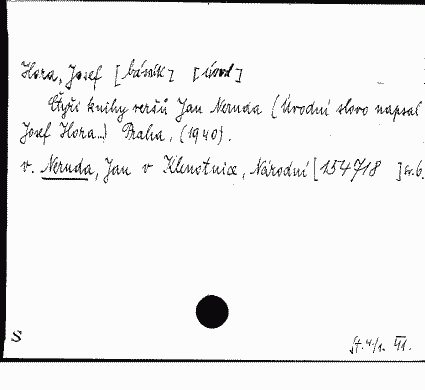 Hora, Josef [básník] [úvod]
Čtyři knihy veršů Jan Neruda (Úvodní slovo napsal
Josef Hora..) Praha, (1940).
v. Neruda, Jan v Klenotnice, Národní [154718 ] sv.6.
S
4/1. 41.